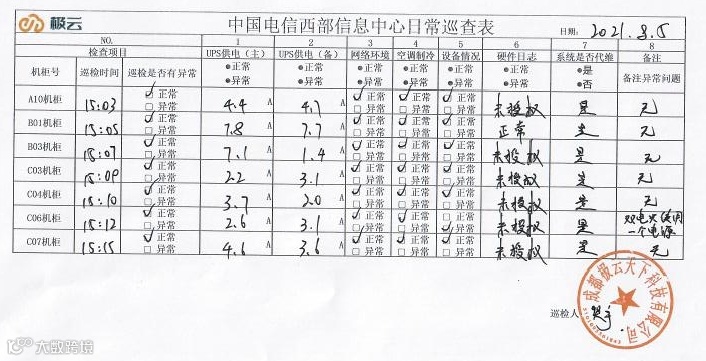 极云
中国电信西部信息中心日常巡查表
日期: 2021.8.5
NO. 1 2 3 4 5 6 7 8
检查项目 UPS供电（主） UPS供电（备） 网络环境 空调制冷 设备情况 硬件日志 系统是否代维 备注
机柜号 巡检时间 巡检是否有异常 ●正常 ●异常 ●正常 ●异常 ●正常 ●异常 ●正常 ●异常 ●正常 ●异常 ●正常 ●异常 ●是 ●否 备注异常问题
A10机柜 15:03 ☑正常 □异常 4.4 A 4.7 A ☑正常 □异常 ☑正常 □异常 ☑正常 □异常 未授权 是 无
B01机柜 15:05 ☑正常 □异常 7.8 A 7.7 A ☑正常 □异常 ☑正常 □异常 ☑正常 □异常 正常 是 无
B03机柜 15:07 ☑正常 □异常 7.1 A 1.4 A ☑正常 □异常 ☑正常 □异常 ☑正常 □异常 未授权 是 无
C03机柜 15:09 ☑正常 □异常 2.2 A 3.1 A ☑正常 □异常 ☑正常 □异常 ☑正常 □异常 未授权 是 无
C04机柜 15:10 ☑正常 □异常 3.7 A 2.0 A ☑正常 □异常 ☑正常 □异常 ☑正常 □异常 未授权 是 无
C06机柜 15:12 ☑正常 □异常 2.6 A 3.1 A ☑正常 □异常 ☑正常 □异常 □正常 ☑异常 未授权 是 一个电源
C07机柜 15:15 ☑正常 □异常 4.6 A 3.6 A ☑正常 □异常 ☑正常 □异常 ☑正常 □异常 未授权 是 无
巡检人:
成都极云天下科技有限公司
大数跨境